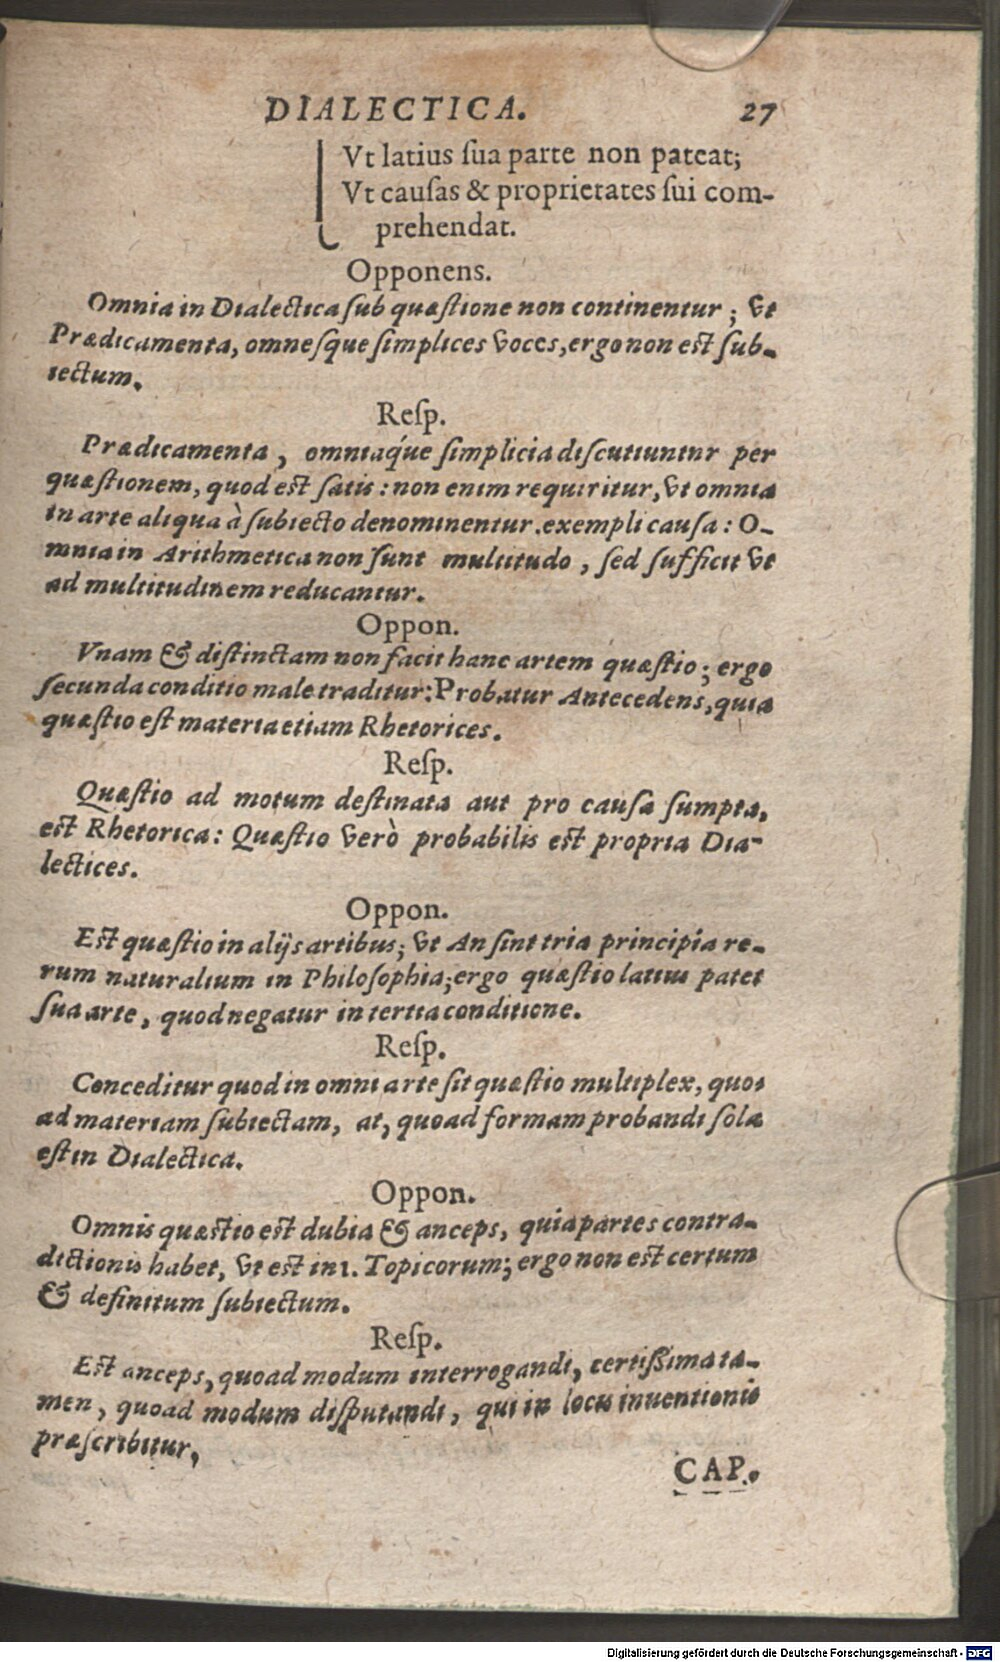 DIALECTICA. 27
Vt latius ſua parte non pateat;
Vt cauſas & proprietates ſui com-
prehendat.
Opponens.
Omnia in Dialectica ſub quæſtione non continentur; vt
Prædicamenta, omneſque ſimplices voces, ergo non eſt ſub-
iectum.
Reſp.
Prædicamenta, omniaq́ue ſimplicia diſcutiuntur per
quæſtionem, quod eſt ſatis: non enim requiritur, vt omnia
in arte aliqua à ſubiecto denominentur. exempli cauſa: O-
mnia in Arithmetica non ſunt multitudo, ſed ſufficit vt
ad multitudinem reducantur.
Oppon.
Vnam & diſtinctam non facit hanc artem quæſtio; ergo
ſecunda conditio male traditur: Probatur Antecedens, quia
quæſtio eſt materia etiam Rhetorices.
Reſp.
Quæſtio ad motum deſtinata aut pro cauſa ſumpta,
eſt Rhetorica: Quæſtio verò probabilis eſt propria Dia-
lectices.
Oppon.
Eſt quæſtio in alijs artibus; vt An ſint tria principia re-
rum naturalium in Philoſophia; ergo quæſtio latius patet
ſua arte, quod negatur in tertia conditione.
Reſp.
Conceditur quod in omni arte ſit quæſtio multiplex, quo-
ad materiam ſubiectam, at, quoad formam probandi ſola
eſt in Dialectica.
Oppon.
Omnis quæſtio eſt dubia & anceps, quia partes contra-
dictionis habet, vt eſt in 1. Topicorum; ergo non eſt certum
& definitum ſubiectum.
Reſp.
Eſt anceps, quoad modum interrogandi, certiſſima ta-
men, quoad modum diſputandi, qui in locis inuentionis
præſcribitur.
CAP.
Digitalisierung gefördert durch die Deutsche Forschungsgemeinschaft - DFG